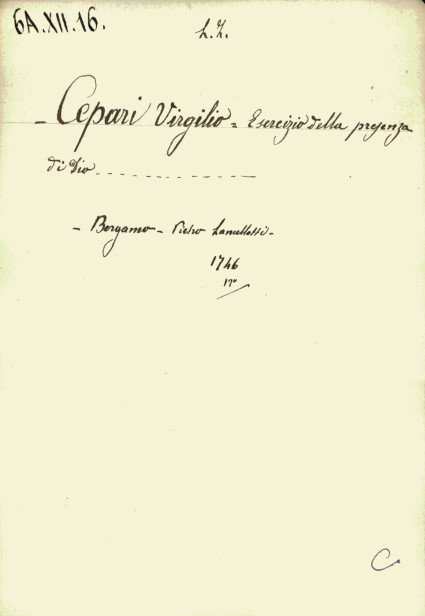 6A.XII.16.
L. Z.
- Cepari Virgilio = Esercizio della presenza
di Dio - - - - - - - - - - - - - -
- Bergamo - Pietro Lancellotti -
1746
12°
C.